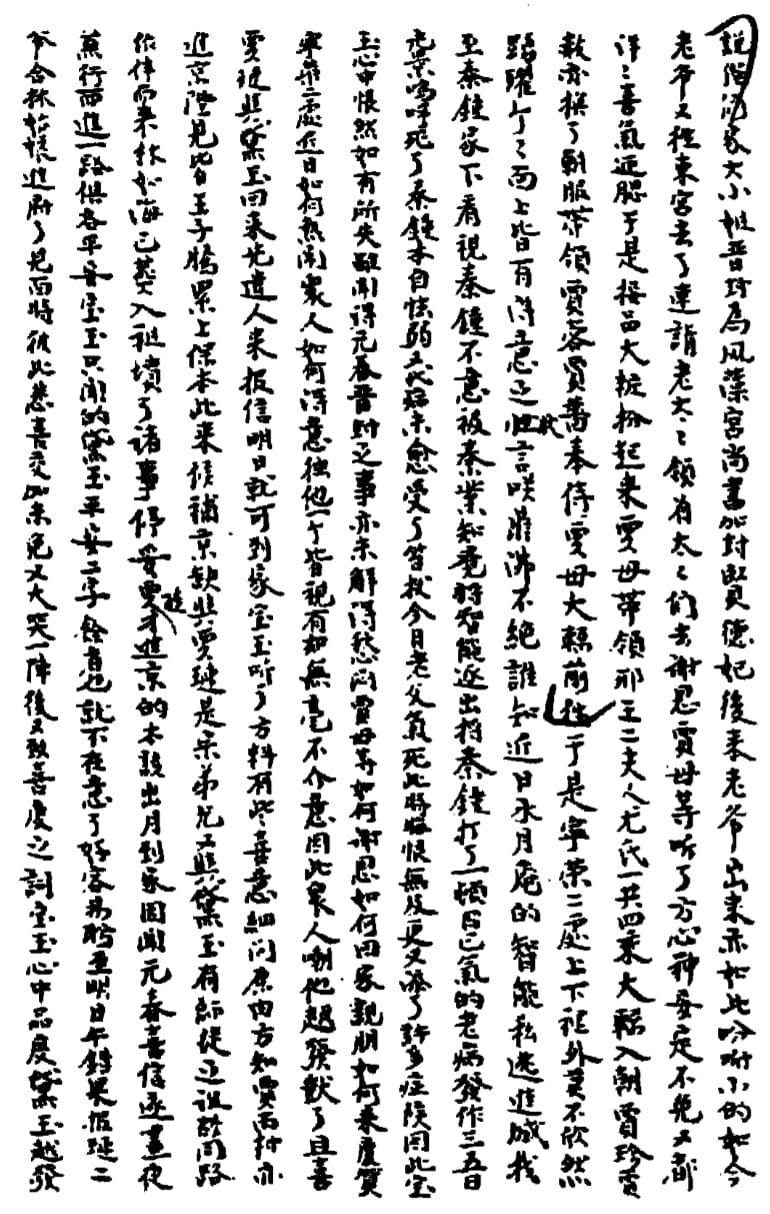 説偺們家大小姐晋封為鳳藻宫尚書加封賢德妃後来老爷出来亦如此吩咐小的如今
老爷又徃東宫去了速請老太〻領着太〻們去謝恩賈母等听了方心神安定不免又都
洋〻喜氣迎腮于是按品大粧扮起来賈母带領邢王二夫人尤氏一共四乘大轎入朝賈珍賈
赦亦換了朝服带領賈蓉賈薔奉侍賈母大轎前徃于是寧荣二處上下裡外莫不欣然
踴躍个〻面上皆有得意之狀言咲鼎沸不絶誰知近日水月庵的智能私逃進城找
至秦鐘家下看視秦鐘不意被秦業知覺将智能逐出将秦鐘打了一頓自己氣的老病發作三五日
光景嗚呼死了秦鐘本自怯弱又代病未愈受了笞杖今見老父氣死此時悔恨無及更又添了許多症候因此宝
玉心中悵然如有所失雖聞得元春晋封之事亦未解得愁悶賈母等如何謝恩如何回家親朋如何来慶賀
寧荣二處近日如何熱閙衆人如何得意獨他一个皆視有如無毫不介意因此衆人嘲他越發獃了且喜
賈璉與黛玉回来先遣人来报信明日就可到家宝玉听了方料有些喜意細问原由方知賈雨村亦
進京陛見皆王子騰累上保本此来候補京缺與賈璉是宗弟兄又與黛玉有師徒之誼故同路
作伴而来林如海已葬入祖墳了諸事停妥賈璉才進京的本該出月到家因聞元春喜信遂晝夜
蒸行而進一路俱各平安宝玉只问的黛玉平安二字餘者也就不在意了好容易盼至明日午錯果报璉二
爷合林姑娘進府了見面時彼此悲喜交加未免又大哭一陣後又致喜慶之詞宝玉心中品度黛玉越發